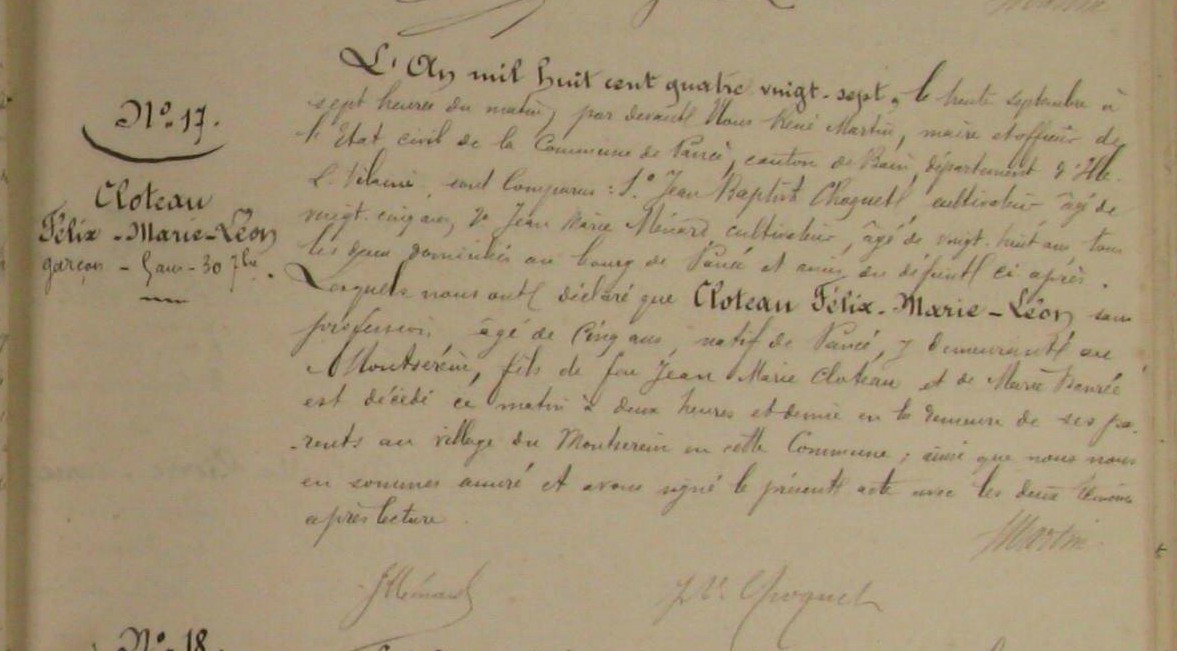 Nº. 17.
Cloteau
Félix - Marie - Léon
garçon - 5 ans - 30 7bre.
L'An mil huit cent quatre vingt-sept, le trente septembre à
sept heures du matin, par devant Nous René Martin, maire et officier de
l'Etat civil de la Commune de Pancé, canton de Bain, département d'Ille-
& Vilaine, sont comparus : 1º Jean Baptiste Choquet cultivateur âgé de
vingt-cinq ans, 2º Jean Marie Ménard cultivateur, âgé de vingt-huit ans tous
les deux domiciliés au bourg de Pancé et amis du défunt ci après.
Lesquels nous ont déclaré que Cloteau Félix-Marie-Léon sans
profession, âgé de cinq ans, natif de Pancé, y demeurant au
Montserein, fils de feu Jean Marie Cloteau et de Marie
est décédé ce matin à deux heures et demie en la demeure de ses pa-
-rents au village du Montserein en cette Commune ; ainsi que nous nous
en sommes assuré et avons signé le présent acte avec les deux témoins
après lecture.
Martin
JMénard
J Bte Choquet
Nº. 18.